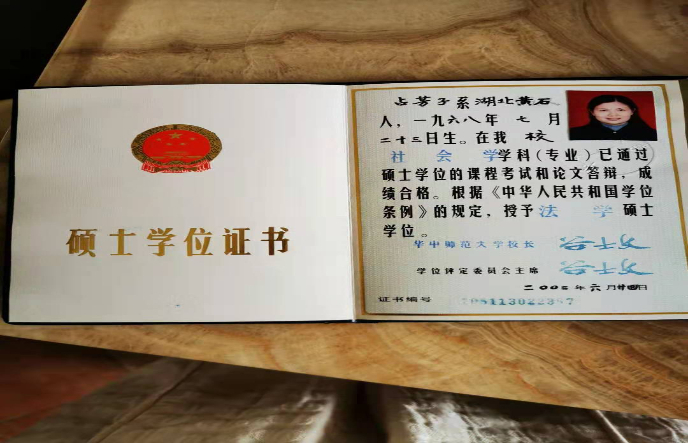 硕士学位证书
占芳子系湖北黄石
人,一九六八年 七 月
二十三日生。在我 校
社 会 学学科(专业)已通过
硕士学位的课程考试和论文答辩,成
绩合格。根据《中华人民共和国学位
条例》的规定,授予法 学 硕士
学位。
华中师范大学校长
学位评定委员会主席
二00 年六月 日
证书编号